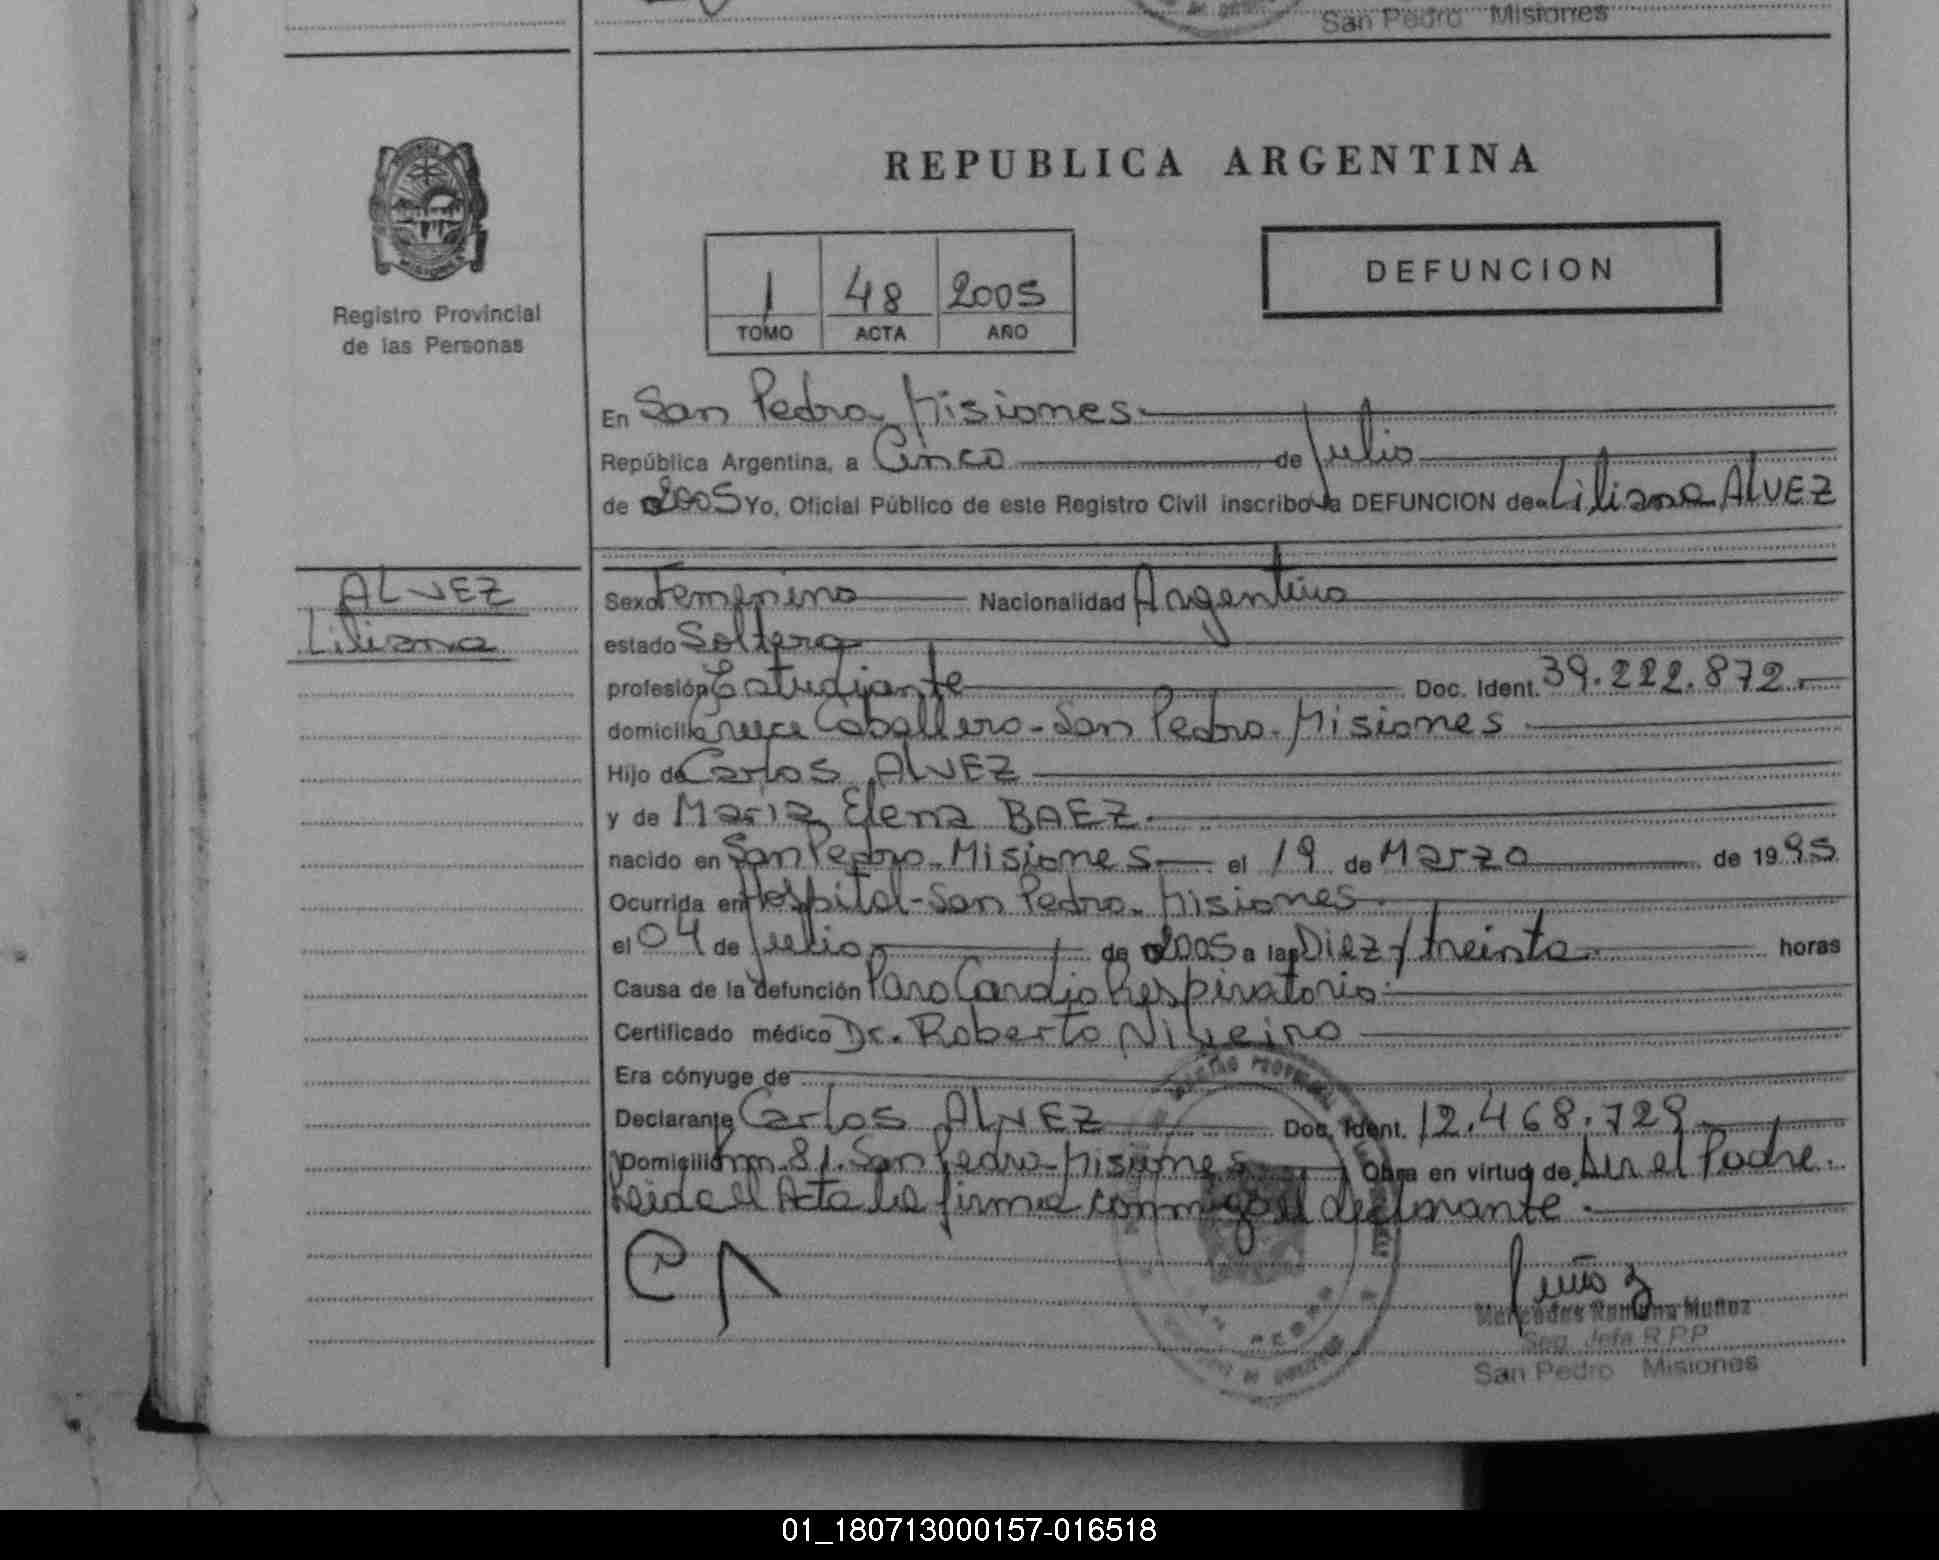 San Pedro Misiones
REPUBLICA ARGENTINA
DEFUNCION
1 48 2005
TOMO ACTA AÑO
Registro Provincial
de las Personas
En San Pedro. Misiones.
República Argentina, a Cinco de Julio
de 2005 Yo, Oficial Público de este Registro Civil inscribo la DEFUNCION de Liliana ALVEZ
ALVEZ
Liliana
Sexo Femenino Nacionalidad Argentina
estado Soltera
profesión Estudiante Doc. Ident. 39.222.872.
domicilio Cruce Caballero - San Pedro. Misiones
Hijo de Carlos ALVEZ
y de Maria Elena BAEZ.
nacido en San Pedro. Misiones. el 19 de Marzo de 1995
Ocurrida en Hospital - San Pedro. Misiones.
el 04 de Julio de 2005 a las Diez y treinta horas
Causa de la defunción Paro Cardio Respiratorio.
Certificado médico Dr. Roberto
Era cónyuge de
Declarante Carlos ALVEZ Doc. Ident. 12.468.729
Domicilio Km. 81. San Pedro - Misiones Obra en virtud de Ser el Padre.
Leida el Acta la firma conmigo el declarante.
CA
Mercedes Ramona Muñoz
Seg. Jefa R.P.P
San Pedro Misiones
01_180713000157-016518